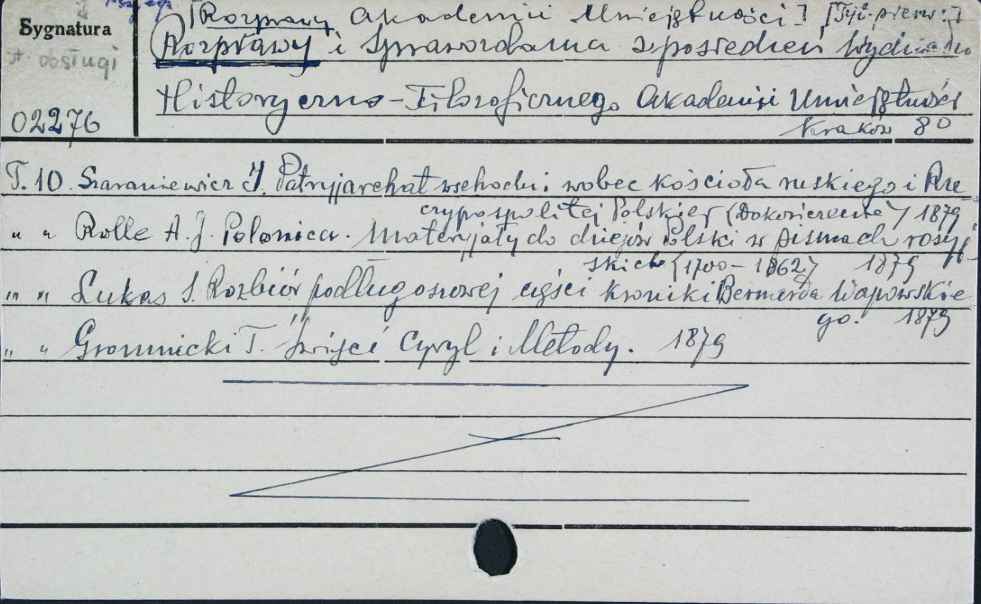 [Rozprawy Akademii Umiejętności] [Tyt. pierw.:]
Sygnatura
Rozprawy i Sprawozdania z posiedzeń Wydziału
obsługi
Historyczno-Filozoficznego Akademii Umiejętności
02276
Kraków 80
T. 10. Szaraniewicz I. Patryjarchat wschodni wobec kościoła ruskiego i Rze
czypospolitej Polskiej (Dokończenie) 1879
" " Rolle A. J. Polonica. Materyjały do dziejów Polski w pismach rosyj
skich (1700-1862) 1879
" " Lukas S. Rozbiór podługoszowej części kroniki Bernarda Wapowskie
go. 1879
" " Gromnicki T. Święci Cyryl i Metody. 1879